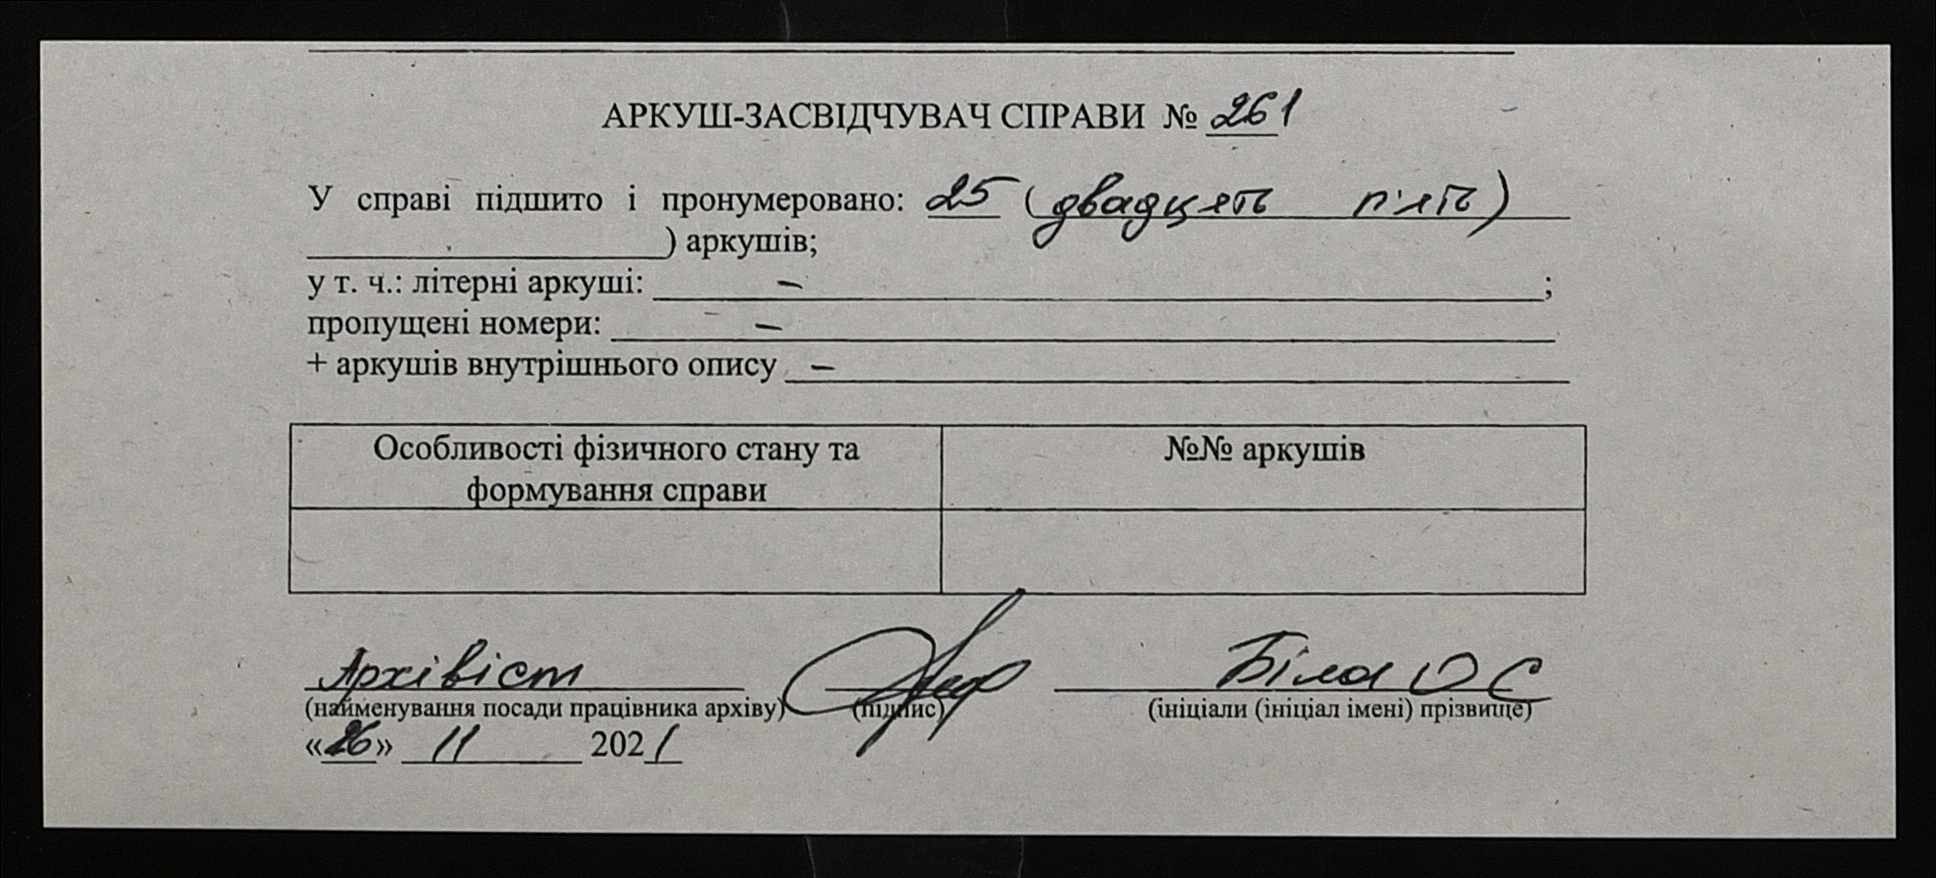 АРКУШ-ЗАСВІДЧУВАЧ СПРАВИ № 261
У справі підшито і пронумеровано: 25 (двадцять п'ять)
) аркушів;
у т. ч.: літерні аркуші: – ;
пропущені номери: –
+ аркушів внутрішнього опису –
Особливості фізичного стану та
формування справи
№№ аркушів
Архівіст Біла О С
(найменування посади працівника архіву) (підпис) (ініціали (ініціал імені) прізвище)
«26» 11 2021